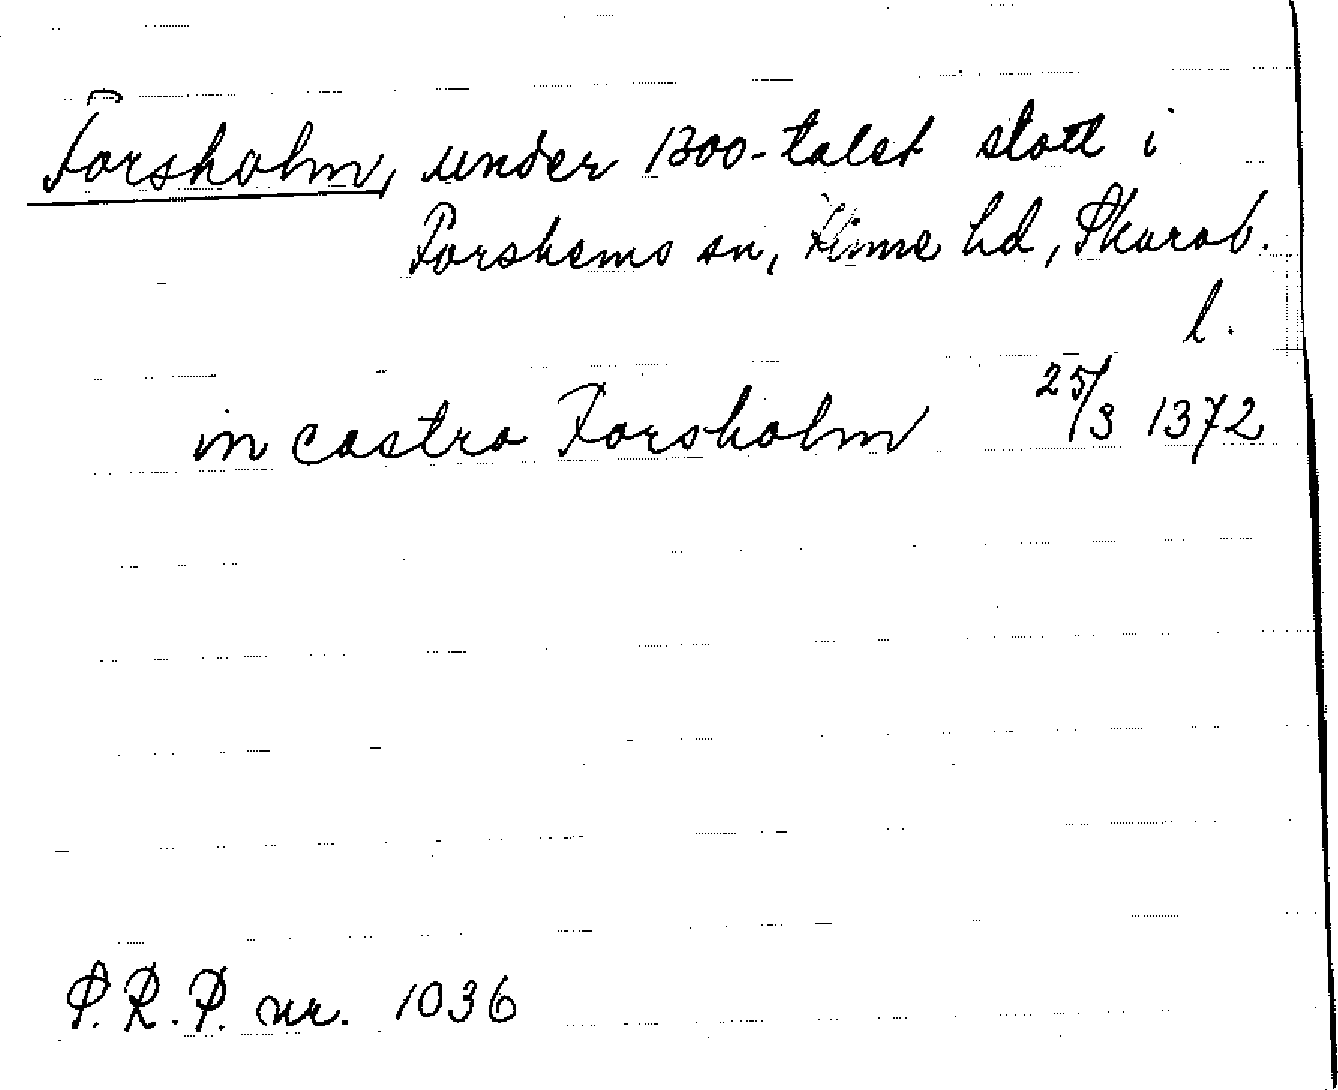 Forsholm, under 1300-talet slott i
Forshems sn, Kinne hd, Skarab.
l.
in castro Forsholm 25/3 1372
S.R.P. nr. 1036